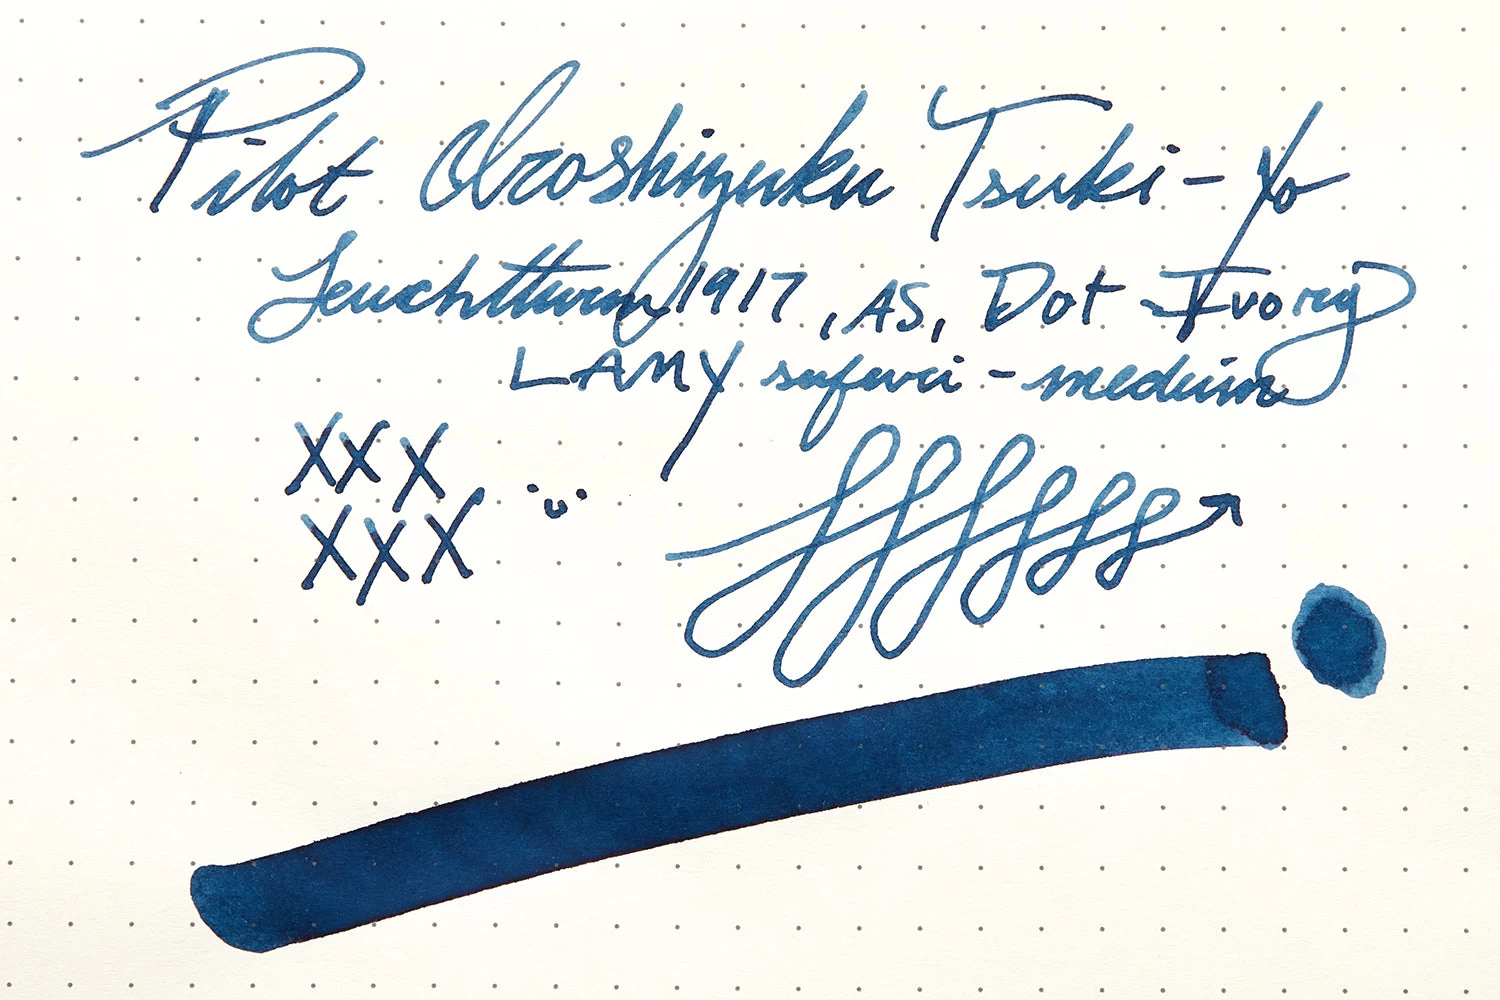 Pilot Iroshizuku Tsuki-Yo
Leuchtturm1917, A5, Dot - Ivory
LAMY safari - medium
XXX
XXX